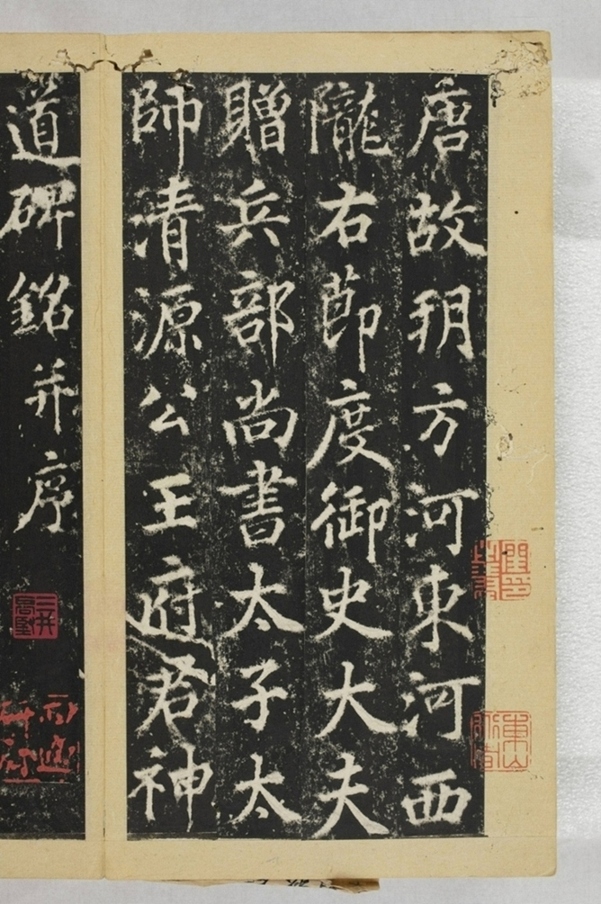 唐故玥方河東河西
隴右莭度御史大夫
贈兵部尚書太子太
師清源公王府君神
道碑銘并序